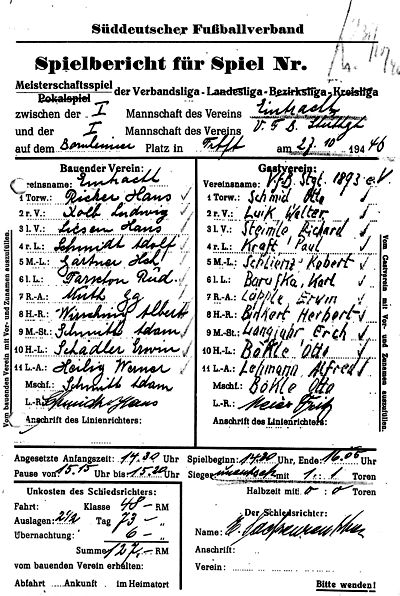 Süddeutscher Fußballverband
Spielbericht für Spiel Nr.
Meisterschaftsspiel
Pokalspiel
der Verbandsliga - Landesliga - Bezirksliga - Kreisliga
zwischen der I Mannschaft des Vereins Eintracht
und der I Mannschaft des Vereins V.f.B. Stuttgt
auf dem Bornheimer Platz in Frkft am 27.10 1946
Bauender Verein:
Vereinsname: Eintracht
1 Torw.: Ricker Hans
2 r. V.: Kolb Ludwig
3 l. V.: Liesem Hans
4 r. L.: Schmidt Adolf
5 M.-L.: Gärtner
6 l. L.: Tarnton Rud.
7 R.-A.: Muth
8 H.-R.: Wirsching Albert
9 M.-St.: Schmitt Adam
10 H.-L.: Schädler Erwin
11 L.-A.: Heilig Werner
Mschf.: Schmitt Adam
L.-R.: Schmidt Hans
Anschrift des Linienrichters:
Vom bauenden Verein mit Vor- und Zunamen auszufüllen.
Gastverein:
Vereinsname: VfB. Stgt. 1893 e.V.
1 Torw.: Schmid Otto
2 r. V.: Luik Walter
3 l. V.: Steimle Richard
4 r. L.: Kraft Paul
5 M.-L.: Schlienz Robert
6 l. L.: Barufka, Karl
7 R.-A.: Läpple Erwin
8 H.-R.: Binkert Herbert
9 M.-St.: Langjahr Erich
10 H.-L.: Böckle Otto
11 L.-A.: Lehmann Alfred
Mschf.: Böckle Otto
L.-R.: Meier Fritz
Anschrift des Linienrichters:
Vom Gastverein mit Vor- und Zunamen auszufüllen.
Angesetzte Anfangszeit: 14.30 Uhr
Pause von 15.15 Uhr bis 15.20 Uhr
Spielbeginn: 14.30 Uhr, Ende: 16.05 Uhr
Sieger unentsch mit 1 : 1 Toren
Halbzeit mit 0 : 0 Toren
Unkosten des Schiedsrichters:
Fahrt: Klasse 48 - RM
Auslagen: 2 1/2 Tag 73 - RM
Übernachtung: 6 - RM
Summe 127,- RM
vom bauenden Verein erhalten:
Abfahrt Ankunft im Heimatort
Der Schiedsrichter:
Name:
Anschrift:
Verein:
Bitte wenden!